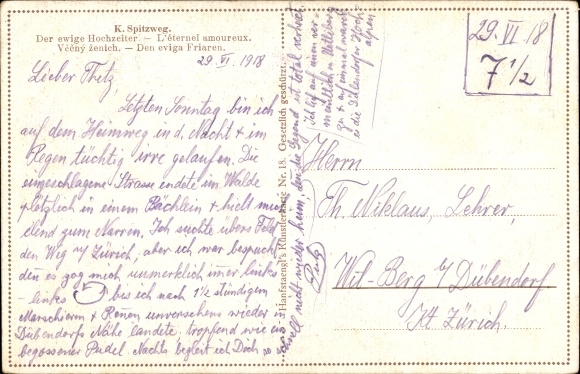 K. Spitzweg.
Der ewige Hochzeiter. — L'éternel amoureux.
Věčný ženich. — Den eviga Friaren.
29 VI. 1918
Lieber
Letzten Sonntag bin ich
auf dem Heimweg in d. Nacht + im
Regen tüchtig irre gelaufen. Die
eingeschlagene Strasse endete im Walde
plötzlich in einem Bächlein + hielt mich
elend zum Narren. Ich suchte übers Feld
den Weg n/ Zürich, aber ich war bespuckt
denn es zog mich unmerklich immer links
- links bis ich nach 1½ stündigem
Marschieren + unversehens wieder in
Dübendorfs Nähe landete, tropfend wie ein
begossener Pudel. Nachts begleit ich Dich so
schnell nicht wieder heim, den die Gegend ist total verhext.
Ich lief auf einen
zu + auf einmal waren
es die
Hanfstaengl's Künstlerkarte Nr. 18. Gesetzlich geschützt.
29. VI 18
7½
Herrn
Th. Niklaus, Lehrer,
Wil-Berg b/ Dübendorf
Kt. Zürich.